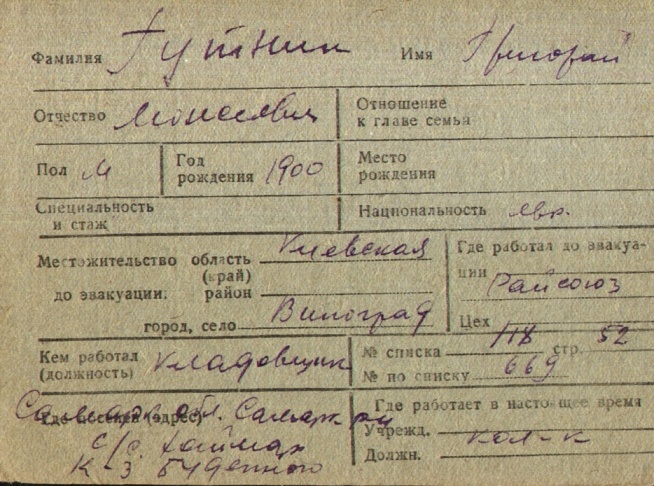 Фамилия Гутник Имя Григорий
Отчество Моисеевич Отношение
к главе семьи
Пол М Год
рождения 1900 Место
рождения
Специальность
и стаж Национальность евр.
Местожительство область Киевская
(край)
до эвакуации: район
город, село Виноград
Где работал до эвакуа-
ции Райсоюз
Цех
Кем работал
(должность) Кладовщик
№ списка 118 стр. 52
№ по списку 669
Где поселен (адрес) Самарк. обл. Самарк р-н
с/с
к-з Буденного
Где работает в настоящее время
Учрежд.
Должн.